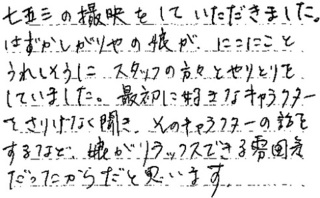 七五三の撮映をしていただきました。
はずかしがりやの娘が、にこにこと
うれしそうに スタッフの方々とやりとりを
していました。最初に好きなキャラクター
をさりげなく聞き、そのキャラクターの話を
するなど、娘がリラックスできる雰囲気
だったからだと思います。